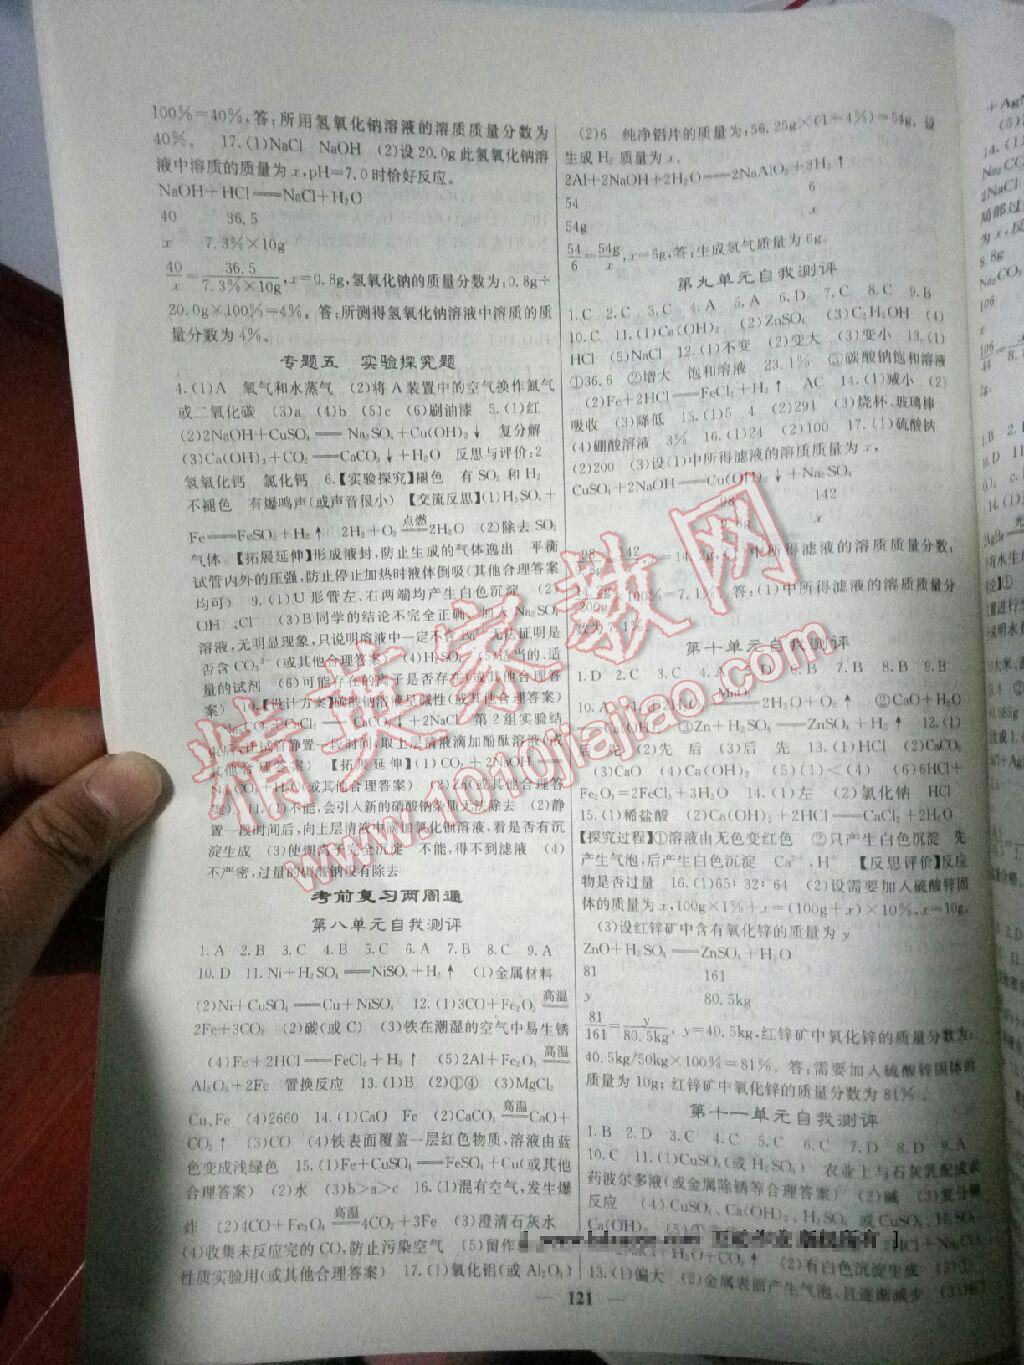 100%=40%,答:所用氢氧化钠溶液的溶质质量分数为
40%。 17.(1)NaCl NaOH (2)设20.0g此氢氧化钠溶
液中溶质的质量为x,pH=7.0时恰好反应。
NaOH+HCl══NaCl+H₂O
40 36.5
x 7.3%×10g
40/x=36.5/7.3%×10g,x=0.8g,氢氧化钠的质量分数为:0.8g÷
20.0g×100%=4%。答:所测得氢氧化钠溶液中溶质的质
量分数为4%。
专题五 实验探究题
4.(1)A 氧气和水蒸气 (2)将A装置中的空气换作氮气
或二氧化碳 (3)a (4)b (5)c (6)刷油漆 5.(1)红
(2)2NaOH+CuSO₄══Na₂SO₄+Cu(OH)₂↓ 复分解
(3)Ca(OH)₂+CO₂══CaCO₃↓+H₂O 反思与评价:2
氢氧化钙 氯化钙 6.【实验探究】褪色 有SO₂和H₂
不褪色 有爆鸣声(或声音很小) 【交流反思】(1)H₂SO₄+
Fe══FeSO₄+H₂↑ 2H₂+O₂点燃══2H₂O (2)除去SO₂
气体 【拓展延伸】形成液封,防止生成的气体逸出 平衡
试管内外的压强,防止停止加热时液体倒吸(其他合理答案
均可) 9.(1)U形管左、右两端均产生白色沉淀 (2)
OH⁻、Cl⁻ (3)B同学的结论不完全正确。加入Na₂SO₄
溶液,无明显现象,只说明溶液中一定不含Ba²⁺,无法证明是
否含CO₃²⁻(或其他合理答案) (4)H₂SO₄ (5)适当的、适
量的试剂 (6)可能存在的离子是否存在(或其他合理答
案) 10.【设计方案】碳酸钠溶液呈碱性(或其他合理答案)
Na₂CO₃+CaCl₂══CaCO₃↓+2NaCl 第2组实验结
束后,让试管静置一段时间,取上层清液滴加酚酞溶液(或
其他合理答案) 【拓展延伸】(1)CO₂+2NaOH══
Na₂CO₃+H₂O(或其他合理答案) (2)2n(或其他合理答
案) 11.(1)不能,会引入新的硝酸钠杂质无法除去 (2)静
置一段时间后,向上层清液中滴加氯化钡溶液,看是否有沉
淀生成 (3)使钡离子完全沉淀 不能,得不到滤液 (4)
不严密,过量的硝酸钠没有除去
考前复习两周通
第八单元自我测评
1.A 2.B 3.C 4.B 5.C 6.A 7.B 8.C 9.A
10.D 11.Ni+H₂SO₄══NiSO₄+H₂↑ (1)金属材料
(2)Ni+CuSO₄══Cu+NiSO₄ 12.(1)3CO+Fe₂O₃高温══
2Fe+3CO₂ (2)碳(或C) (3)铁在潮湿的空气中易生锈
(4)Fe+2HCl══FeCl₂+H₂↑ (5)2Al+Fe₂O₃高温══
Al₂O₃+2Fe 置换反应 13.(1)B (2)①④ (3)MgCl₂
Cu、Fe (4)2660 14.(1)CaO Fe (2)CaCO₃高温══CaO+
CO₂↑ (3)CO (4)铁表面覆盖一层红色物质,溶液由蓝
色变成浅绿色 15.(1)Fe+CuSO₄══FeSO₄+Cu(或其他
合理答案) (2)水 (3)b>a>c 16.(1)混有空气,发生爆
炸 (2)4CO+Fe₃O₄高温══4CO₂+3Fe (3)澄清石灰水
(4)收集未反应完的CO,防止污染空气 (5)留作
性质实验用(或其他合理答案) 17.(1)氧化铝(或Al₂O₃)
(2)6 纯净铝片的质量为:56.25g×(1-4%)=54g。设
生成H₂质量为x。
2Al+2NaOH+2H₂O══2NaAlO₂+3H₂↑
54 6
54g x
54/6=54g/x,x=6g,答:生成氢气质量为6g。
第九单元自我测评
1.C 2.C 3.C 4.A 5.A 6.D 7.C 8.C 9.B
10.C 11.(1)Ca(OH)₂ (2)ZnSO₄ (3)C₂H₅OH (4)
HCl (5)NaCl 12.(1)不变 (2)变大 (3)变小 13.(1)
①36.6 ②增大 饱和溶液 23.1% ③碳酸钠饱和溶液
(2)Fe+2HCl══FeCl₂+H₂↑ AC 14.(1)减小 (2)
吸收 (3)降低 15.(1)5 4 (2)291 (3)烧杯、玻璃棒
(4)硼酸溶液 3% 16.(1)24 (2)100 17.(1)硫酸钠
(2)200 (3)设(1)中所得滤液的溶质质量为x,
CuSO₄+2NaOH══Cu(OH)₂↓+Na₂SO₄
98 142
9.8g x
98/9.8g=142/x,x=14.2g,(1)中所得滤液的溶质质量分数:
14.2g/200g×100%=7.1%。答:(1)中所得滤液的溶质质量分
数为7.1%。
第十单元自我测评
1.D 2.C 3.C 4.A 5.A 6.D 7.B 8.B 9.B
②CaO+H₂O
③Zn+H₂SO₄══ZnSO₄+H₂↑ 12.(1)
后 先 (2)先 后 (3)后 先 13.(1)HCl (2)CaCO₃
(3)CaO (4)Ca(OH)₂ (5)(1)<(4) (6)6HCl+
Fe₂O₃=2FeCl₃+3H₂O 14.(1)左 (2)氯化钠 HCl
15.(1)稀盐酸 (2)Ca(OH)₂+2HCl══CaCl₂+2H₂O
【探究过程】①溶液由无色变红色 ②只产生白色沉淀 先
产生气泡,后产生白色沉淀 Ca²⁺、H⁺ 【反思评价】反应
物是否过量 16.(1)65∶32∶64 (2)设需要加入硫酸锌固
体的质量为x,100g×1%+x=(100g+x)×10%,x=10g。
(3)设红锌矿中含有氧化锌的质量为y
ZnO+H₂SO₄══ZnSO₄+H₂O
81 161
y 80.5kg
81/161=y/80.5kg,y=40.5kg,红锌矿中氧化锌的质量分数为:
40.5kg/50kg×100%=81%。答:需要加入硫酸锌固体的
质量为10g;红锌矿中氧化锌的质量分数为81%。
第十一单元自我测评
1.B 2.D 3.C 4.C 5.C 6.C 7.D 8.D 9.A
10.C 11.(1)CuSO₄(或H₂SO₄) 农业上与石灰乳配成农
药波尔多液(或金属除锈等合理答案) (2)碱 (3)复分解
反应 (4)CuSO₄、Ca(OH)₂、H₂SO₄ 或CuSO₄、H₂SO₄
Ca(OH)₂
(2)有白色沉淀生成
13.(1)偏大 (2)金属表面产生气泡,且逐渐减少 (3)HCl
— 121 —
精英家教网
www.1010jiajiao.com